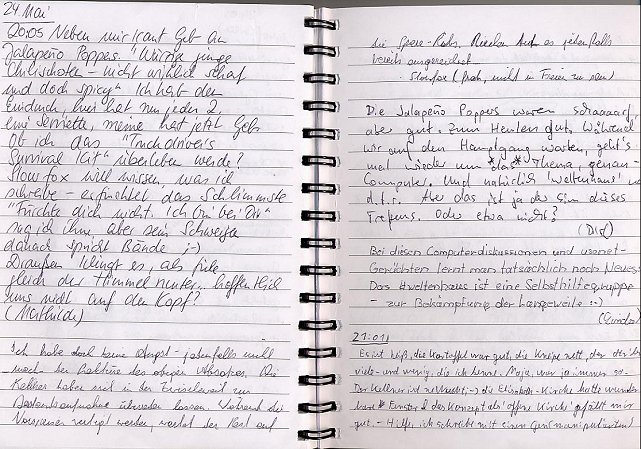 24. Mai
20:05 Neben mir kommt Geb an
Jalapeño Poppes. "Würzige junge
Chilischoten - nicht wirklich scharf
und doch spicy" Ich hab den
Eindruck, hier hat nun jeden 2.
eine Serviette, meine hast jetzt Geb
Ob ich das "Truckdriver's
Survival Kit" überleben werde?
Slowfox will wissen, was ich
schreibe - erfürchtet das Schlimmste
"Fürchte dich nicht. Ich bin bei Dir"
sag ich ihm aber sein Schweigen
danach spricht Bände ;-)
Draußen klingt es, als fiele
gleich der Himmel runter. hoffentlich
uns nicht auf den Kopf?
(Mathilda)
Ich habe doch keine Angst - jedenfalls nicht
nach der Lektüre des obigen Absatzes. Die
Kellner haben sich in der Zwischenzeit zur
überreden lassen. Während die
Vorspeisen verlegt werden, wartet der Rest auf
die Spare-Ribs, Riechen tut es jedenfalls
bereits ausgezeichnet
Slowfox (froh, nicht im Freien zu sein)
Die Jalapeño Poppers waren schaaaarf,
aber gut. Zum Heulen gut. Während
wir auf den Hauptgang warten, geht's
mal wieder um *das* Thema, genannt
Computer. Und natürlich 'weltenhaus' und
d.t.r. Aber das ist ja der Sinn dieses
Treffens. Oder etwa nicht?
Bei diesen Computerdiskussionen und usenet-
Geschichten lernt man tatsächlich noch Neues:
Das #weltenhaus ist eine Selbsthilfegruppe
- zur Bekämpfung der Langeweile :-)
21:01
Es ist heiß, die Kartoffel war gut, die Kneipe nett, der der
viele und wenig, die ich kenne. Maja, war ja immer so.
Der Kellner ist ;-) die Elisabeth-Kirche hatte wunder
bare Fenster & das Konzept als 'offene Kirche' gefällt mir
gut. - Hilfe, ich schreibe mit einem